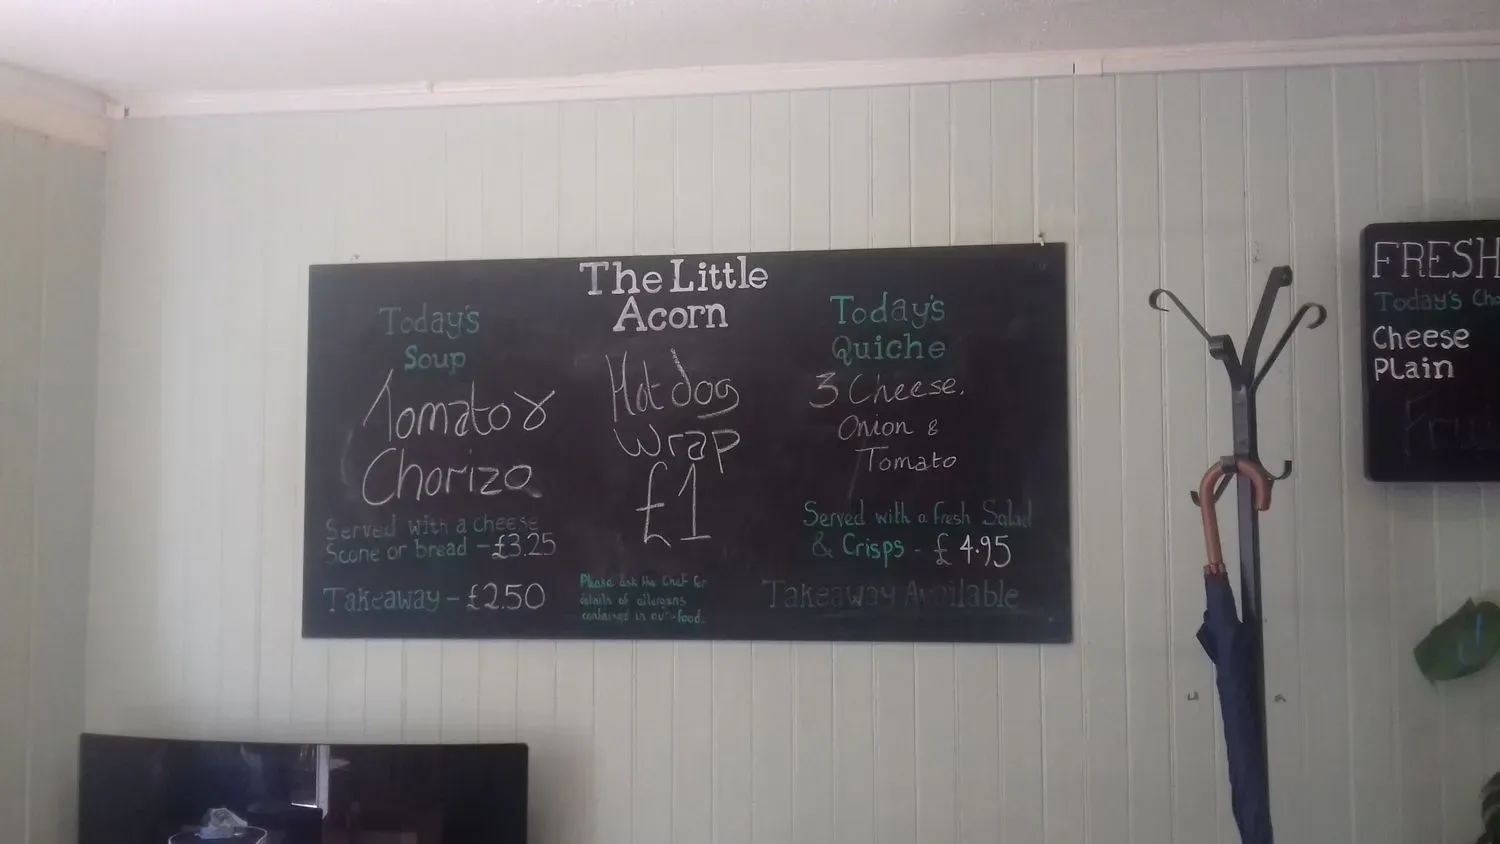 The Little
Acorn
Today's
Soup
Tomato &
Chorizo
Served with a cheese
Scone or bread - £3.25
Takeaway - £2.50
Hot dog
wrap
£1
Please ask the Chef for
details of allergens
contained in our food.
Today's
Quiche
3 Cheese,
Onion &
Tomato
Served with a fresh Salad
& Crisps - £4.95
Takeaway Available
FRESH
Today's
Cheese
Plain